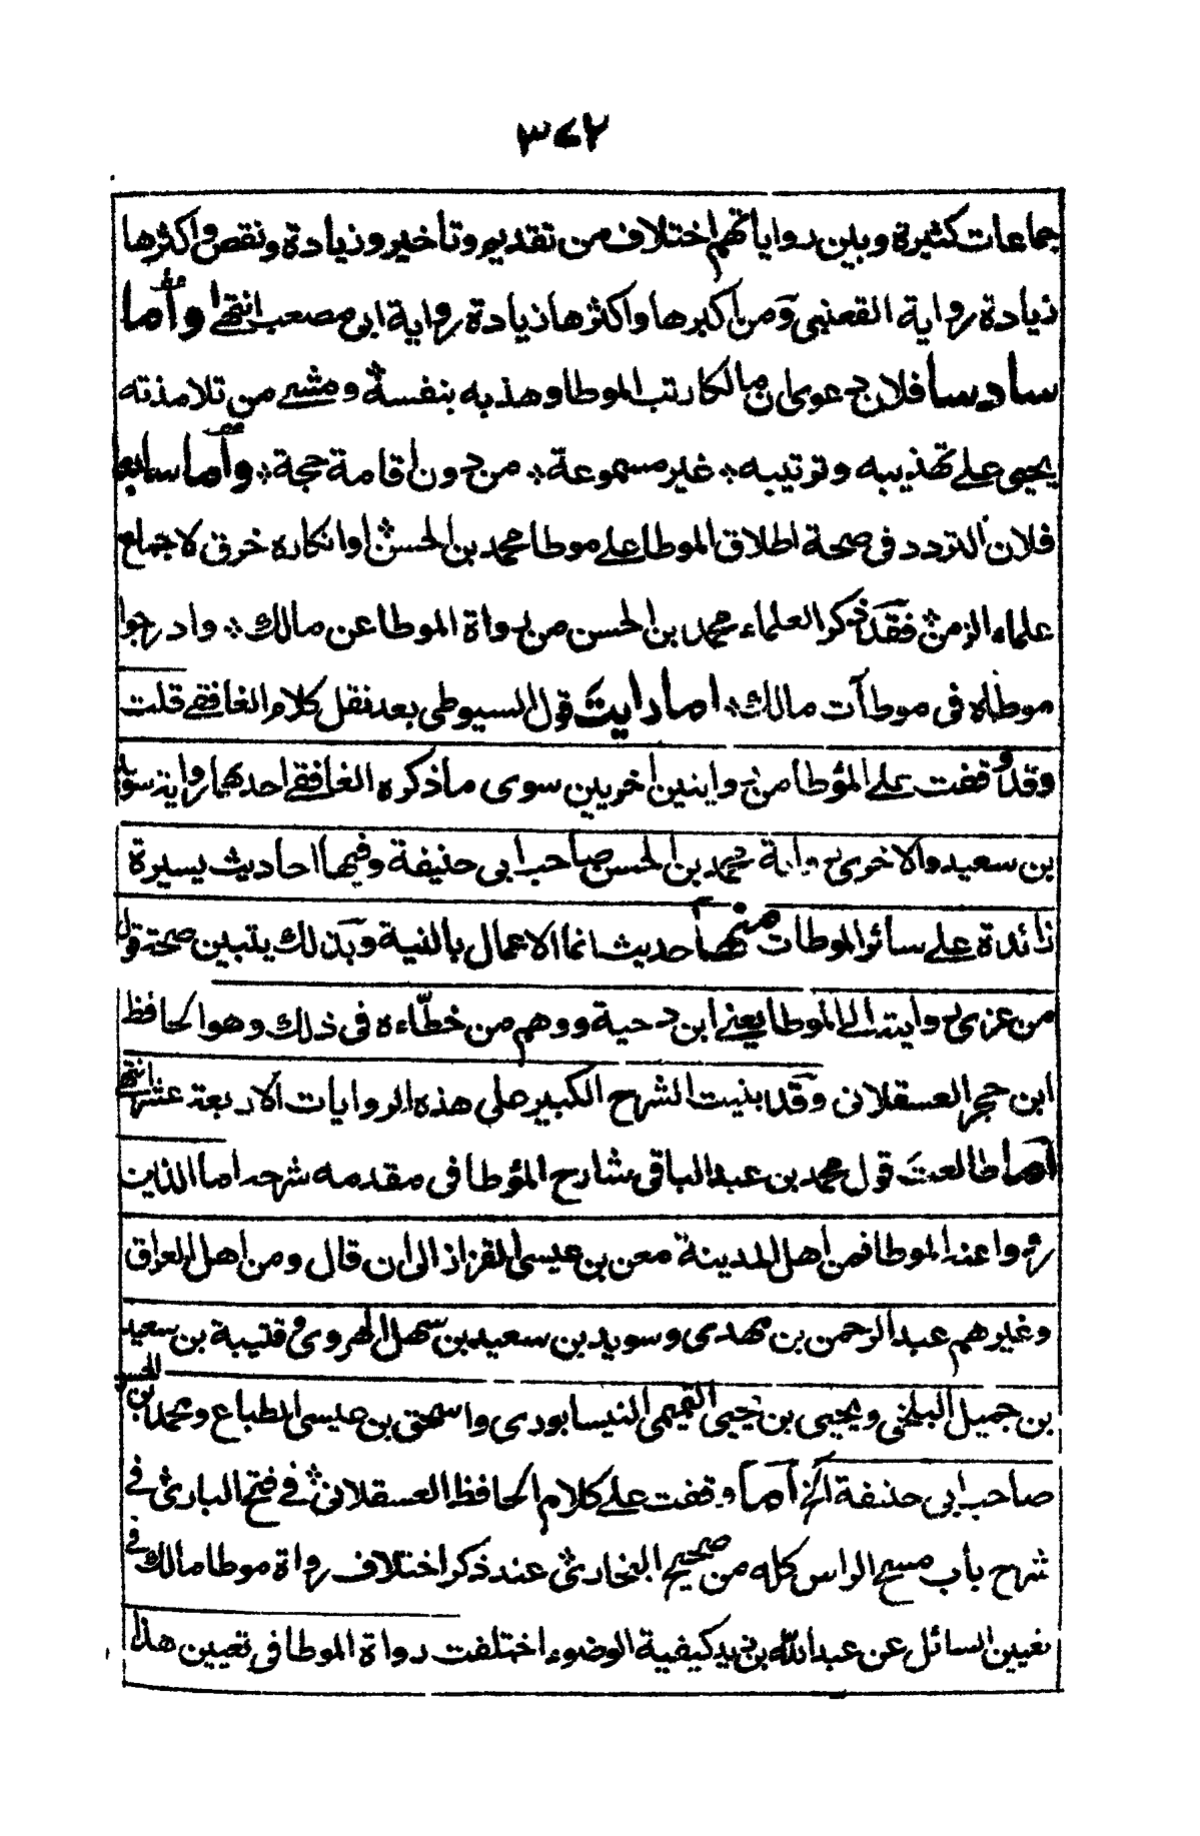 ٣٧٢
جماعات كثيرة وبين رواياتهم اختلاف من تقديم وتاخير وزيادة ونقص واكثرها
زيادة رواية القعنبى ومن اكبرها واكثرها زيادة رواية ابى مصعب انتهى وأما
سادسا فلان دعوى ان مالكا رتب الموطا وهذبه بنفسه ومشى من تلامذته
يحيى على تهذيبه وترتيبه ؞ غير مسموعة ؞ من دون اقامة حجة ؞ وأما سابعا
فلان التردد فى صحة اطلاق الموطا على موطا محمد بن الحسن اوانكاره خرق لاجماع
علماء الزمن فقد ذكر العلماء محمد بن الحسن من رواة الموطا عن مالك ؞ وادرجوا
موطاه فى موطآت مالك ؞ اما رايت قول السيوطى بعد نقل كلام الغافقى قلت
وقد وقفت على المؤطا من روايتين اخريين سوى ما ذكره الغافقى احدهما رواية سويد
بن سعيد والاخرى رواية محمد بن الحسن صاحب ابى حنيفة وفيها احاديث يسيرة
زائدة على سائر الموطات منها حديث انما الاعمال بالنية وبذلك يتبين صحة قول
من عزى روايته الى الموطا يعنى ابن دحية ووهم من خطّاءه فى ذلك وهو الحافظ
ابن حجر العسقلانى وقد بنيت الشرح الكبير على هذه الروايات الاربعة عشر انتهى
اما طالعت قول محمد بن عبد الباقى شارح المؤطا فى مقدمه شرحه اما الذين
رووا عنه الموطا فمن اهل المدينة معن بن عيسى القزاز الى ان قال ومن اهل العراق
وغيرهم عبد الرحمن بن مهدى وسويد بن سعيد بن سهل الهروى وقتيبة بن سعيد
بن جميل البلخى ويحيى بن يحيى التميمى النيسابورى واسحق بن عيسى الطباع ومحمد بن الحسن
صاحب ابى حنيفة الخ اما وقفت على كلام الحافظ العسقلانى فى فتح البارى فى
شرح باب مسح الراس كله من صحيح البخارى عند ذكر اختلاف رواة موطا مالك فى
تعيين السائل عن عبد الله بن زيد كيفية الوضوء اختلفت رواة الموطا فى تعيين هذا